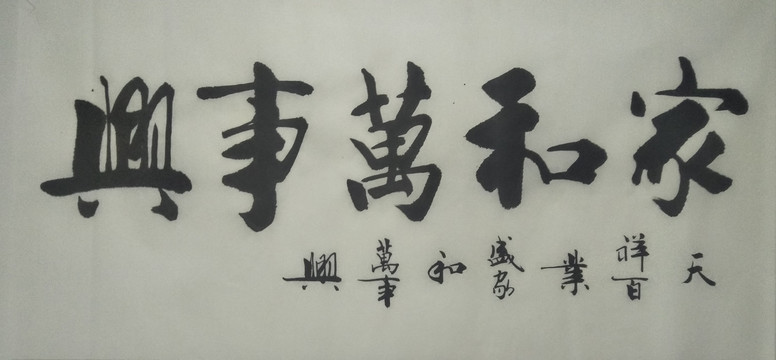 家和萬事興
天祥百業盛家和萬事興